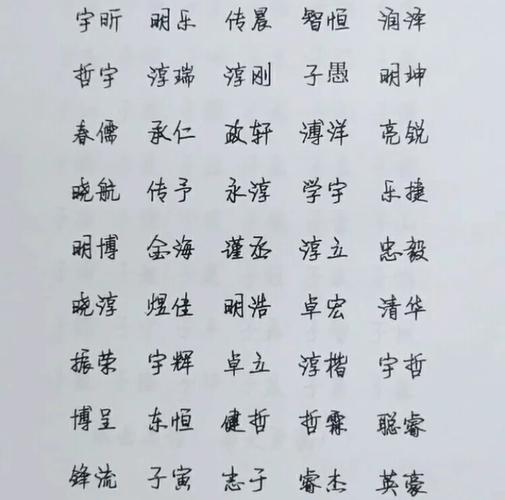 宇昕 明乐 传晨 智恒 润泽
哲宇 淳瑞 淳刚 子愚 明坤
春儒 承仁 政轩 溥洋 亮锐
晓航 传予 永淳 学宇 乐捷
明博 金海 谨丞 淳立 忠毅
晓淳 煜佳 明浩 卓宏 清华
振荣 宇辉 卓立 淳楷 宇哲
博呈 东恒 健哲 哲霖 聪睿
锋流 子寅 志于 睿杰 英豪